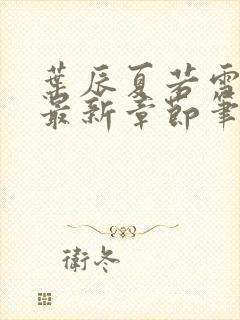 葉辰夏若雪
最新章節筆
衛冬